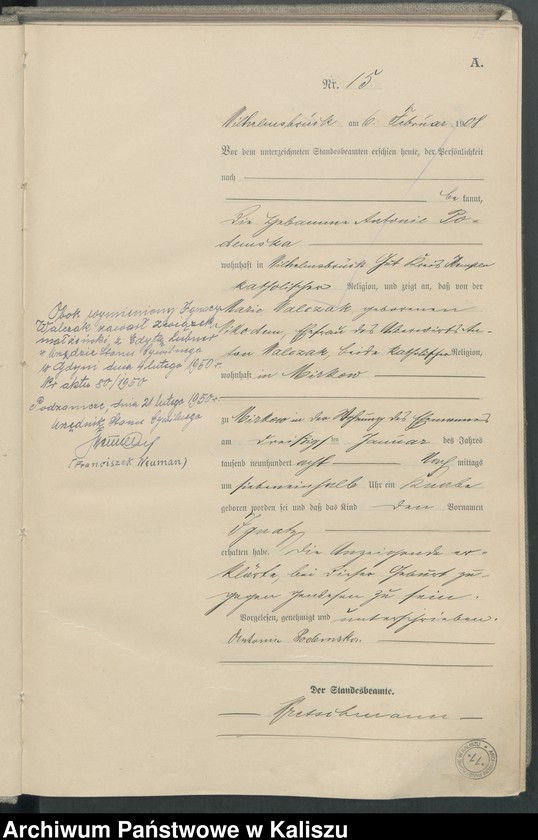 A.
Nr. 15
Wilhelmsbrück am 6. Februar 1908
Vor dem unterzeichneten Standesbeamten erschien heute, der Persönlichkeit
nach
be kannt,
Die Hebamme Antonie Po-
demska
wohnhaft in Wilhelmsbrück Gut Kreis Kempen
katholischer Religion, und zeigt an, daß von der
Marie Walczak geborenen
Nikodem, Ehefrau des An-
ton Walczak, beide katholischer Religion,
wohnhaft in Mirkow
zu Mirkow in der Wohnung des Ehemannes
am dreißigsten Januar des Jahres
tausend neunhundert acht Nachmittags
um siebeneinhalb Uhr ein Knabe
geboren worden sei und daß das Kind den Vornamen
Ignatz
erhalten habe. Die Anzeigende er-
klärte, bei dieser Geburt zu-
gegen gewesen zu sein.
Vorgelesen, genehmigt und unterschrieben.
Antonie Podemska.
Der Standesbeamte.
Kretschmann
Obok wymieniony Ignacy
Walczak zawarł związek
małżeński z Edytą Lubner
w Urzędzie Stanu Cywilnego
w Gdyni dnia 4 lutego 1950 r.
Nr aktu 80/1950
Podzamcze, dnia 21 lutego 1950 r.
Urzędnik Stanu Cywilnego
(Franciszek Neuman)
Archiwum Państwowe w Kaliszu